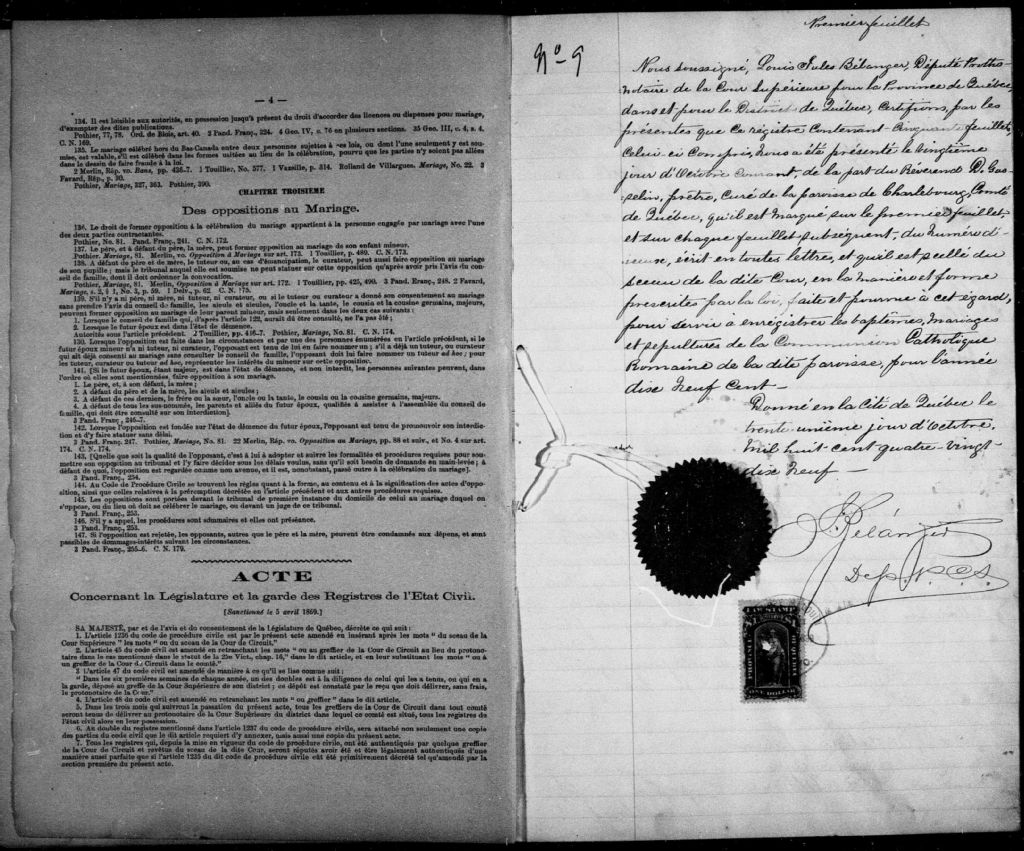 — 4 —
134. Il est loisible aux autorités, en possession jusqu'à présent du droit d'accorder des licences ou dispenses pour mariage,
d'exempter des dites publications.
Pothier, 77, 78. Ord. de Blois, art. 40. 3 Pand. Franç., 324. 4 Geo. IV, c. 76 en plusieurs sections. 35 Geo. III, c. 4, s. 4.
C. N. 169.
135. Le mariage célébré hors du Bas-Canada entre deux personnes sujettes à ses lois, ou dont l'une seulement y est sou-
mise, est valable, s'il est célébré dans les formes usitées au lieu de la célébration, pourvu que les parties n'y soient pas allées
dans le dessin de faire fraude à la loi.
2 Merlin, Rép. vo. Bans, pp. 436-7. 1 Touillier, No. 577. 1 Vazeille, p. 314. Rolland de Villargues, Mariage, No. 22. 3
Favard, Rép., p. 30.
Pothier, Mariage, 327, 363. Pothier, 390.
CHAPITRE TROISIEME
Des oppositions au Mariage.
136. Le droit de former opposition à la célébration du mariage appartient à la personne engagée par mariage avec l'une
des deux parties contractantes.
Pothier, No. 81. Pand. Franç., 241. C. N. 172.
137. Le père, et à défaut du père, la mère, peut former opposition au mariage de son enfant mineur.
Pothier, Mariage, 81. Merlin, vo. Opposition à Mariage sur art. 173. 1 Touillier, p. 489. C. N. 173.
138. A défaut du père et de mère, le tuteur ou, au cas d'émancipation, le curateur, peut aussi faire opposition au mariage
de son pupille; mais le tribunal auquel elle est soumise ne peut statuer sur cette opposition qu'après avoir pris l'avis du con-
seil de famille, dont il doit ordonner la convocation.
Pothier, Mariage, 81. Merlin, Opposition à Mariage sur art. 172. 1 Touillier, pp. 425, 490. 3 Pand. Franç., 248. 2 Favard,
Mariage, s. 2, § 1, No. 3, p. 59. 1 Delv., p. 62 C. N. 175.
139. S'il n'y a ni père, ni mère, ni tuteur, ni curateur, ou si le tuteur ou curateur a donné son consentement au mariage
sans prendre l'avis du conseil de famille, les aïeuls et aïeules, l'oncle et la tante, le cousin et la cousine germains, majeurs,
peuvent former opposition au mariage de leur parent mineur, mais seulement dans les deux cas suivants:
1. Lorsque le conseil de famille qui, d'après l'article 122, aurait dû être consulté, ne l'a pas été;
2. Lorsque le futur époux est dans l'état de démence.
Autorités sous l'article précédent. 2 Touillier, pp. 416-7. Pothier, Mariage, No. 81. C. N. 174.
130. Lorsque l'opposition est faite dans les circonstances et par une des personnes énumérées en l'article précédent, si le
futur époux mineur n'a ni tuteur, ni curateur, l'opposant est tenu de lui en faire nommer un; s'il a déjà un tuteur, ou curateur
qui ait déjà consenti au mariage sans consulter le conseil de famille, l'opposant doit lui faire nommer un tuteur ad hoc; pour
les tuteur, curateur ou tuteur ad hoc, représenter les intérêts du mineur sur cette opposition.
141. [Si le futur époux, étant majeur, est dans l'état de démence, et non interdit, les personnes suivantes peuvent, dans
l'ordre où elles sont mentionnées, faire opposition à son mariage.
1. Le père, et, à son défaut, la mère;
2. A défaut du père et de la mère, les aïeuls et aïeules;
3. A défaut de ces derniers, le frère ou la sœur, l'oncle ou la tante, le cousin ou la cousine germains, majeurs.
4. A défaut de tous les sus-nommés, les parents et alliés du futur époux, qualifiés à assister à l'assemblée du conseil de
famille, qui doit être consulté sur son interdiction].
3 Pand. Franç., 246-7.
142. Lorsque l'opposition est fondée sur l'état de démence du futur époux, l'opposant est tenu de promouvoir son interdic-
tion et d'y faire statuer sans délai.
3 Pand. Franç. 247. Pothier, Mariage, No. 81. 22 Merlin, Rép. vo. Opposition au Mariage, pp. 88 et suiv., et No. 4 sur art.
174. C. N. 174.
143. [Quelle que soit la qualité de l'opposant, c'est à lui à adopter et suivre les formalités et procédures requises pour sou-
mettre son opposition au tribunal et l'y faire décider sous les délais voulus, sans qu'il soit besoin de demande en main-levée; à
défaut de quoi, l'opposition est regardée comme non avenue, et il est, nonobstant, passé outre à la célébration du mariage].
3 Pand. Franç., 254.
144. Au Code de Procédure Civile se trouvent les règles quant à la forme, au contenu et à la signification des actes d'oppo-
sition, ainsi que celles relatives à la péremption décrétée en l'article précédent et aux autres procédures requises.
145. Les oppositions sont portées devant le tribunal de première instance du domicile de celui au mariage duquel on
s'oppose, ou du lieu où doit se célébrer le mariage, ou devant un juge de ce tribunal.
3 Pand. Franç., 253.
146. S'il y a appel, les procédures sont sommaires et elles ont préséance.
3 Pand. Franç., 253.
147. Si l'opposition est rejetée, les opposants, autres que le père et la mère, peuvent être condamnés aux dépens, et sont
passibles de dommages-intérêts suivant les circonstances.
3 Pand. Franç., 255-6. C. N. 179.
ACTE
Concernant la Législature et la garde des Registres de l'Etat Civil.
[Sanctionné le 5 avril 1869.]
SA MAJESTÉ, par et de l'avis et du consentement de la Législature de Québec, décrète ce qui suit:
1. L'article 1236 du code de procédure civile est par le présent acte amendé en insérant après les mots "du sceau de la
Cour Supérieure" les mots "ou du sceau de la Cour de Circuit."
2. L'article 45 du code civil est amendé en retranchant les mots "ou au greffier de la Cour de Circuit au lieu du protono-
taire dans le cas mentionné dans le statut de la 25e Vict., chap. 16," dans le dit article, et en leur substituant les mots "ou à
un greffier de la Cour de Circuit dans le comté."
3 L'article 47 du code civil est amendé de manière à ce qu'il se lise comme suit:
"Dans les six premières semaines de chaque année, un des doubles est à la diligence de celui qui les a tenus, ou qui en a
la garde, déposé au greffe de la Cour Supérieure de son district; ce dépôt est constaté par le reçu que doit délivrer, sans frais,
le protonotaire de la Cour."
4. L'article 48 du code civil est amendé en retranchant les mots "ou greffier" dans le dit article.
5. Dans les trois mois qui suivront la passation du présent acte, tous les greffiers de la Cour de Circuit dans tout comté
seront tenus de délivrer au protonotaire de la Cour Supérieure du district dans lequel ce comté est situé, tous les registres de
l'état civil alors en leur possession.
6. Au double du registre mentionné dans l'article 1237 du code de procédure civile, sera attaché non seulement une copie
des parties du code civil que le dit article requiert d'y annexer, mais aussi une copie du présent acte.
7. Tous les registres qui, depuis la mise en vigueur du code de procédure civile, ont été authentiqués par quelque greffier
de la Cour de Circuit et revêtus du sceau de la dite Cour, seront réputés avoir été et être légalement authentiqués d'une
manière aussi parfaite que si l'article 1235 du dit code de procédure civile eût été primitivement décrété tel qu'amendé par la
section première du présent acte.
Premier feuillet
No 9
Nous soussigné, Louis Jules Bélanger, Député Protho-
notaire de la Cour Supérieure pour la Province de Québec,
dans et pour le District de Québec, Certifions, par les
présentes que ce registre Contenant Cinquante feuillets,
Celui-ci Compris, nous a été présenté le vingtième
jour d'Octobre Courant, de la part du Révérend D. Gos-
selin, prêtre, Curé de la paroisse de Charlebourg, Comté
de Québec, qu'il est marqué sur le premier feuillet,
et sur chaque feuillet subséquent, du numéro d'i-
ceux, écrit en toutes lettres, et qu'il est scellé du
sceau de la dite Cour, en la manière et forme
prescrites par la loi, faite et pourvue à cet égard,
pour servir à enregistrer les baptêmes, mariages
et sépultures de la Communion Catholique
Romaine de la dite paroisse, pour l'année
dix neuf Cent —
Donné en la Cité de Québec le
trente unième jour d'Octobre,
mil huit cent quatre-vingt
dix neuf —
Bélanger
Dep. P. C. S.
LAW STAMP
PROVINCE OF QUEBEC
ONE DOLLAR